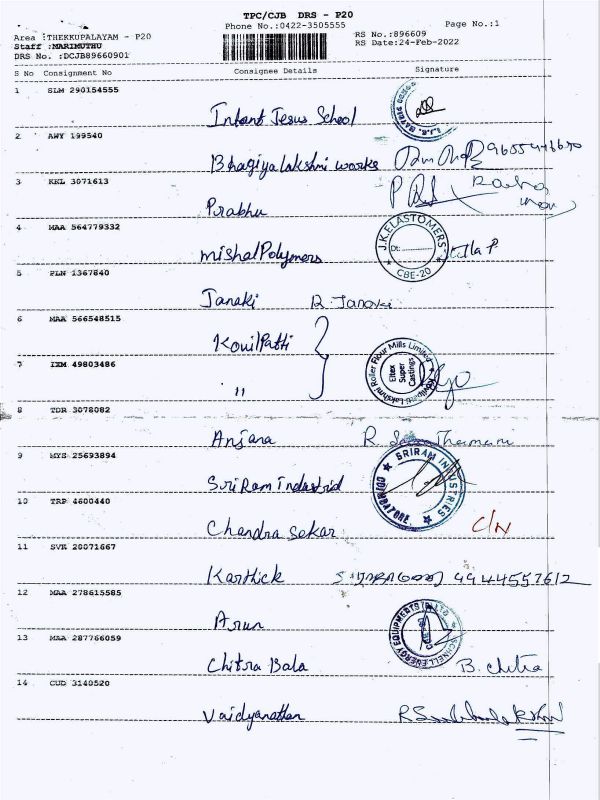 TPC/CJB DRS - P20
Phone No.:0422-3505555 Page No.:1
Area :THEKKUPALAYAM - P20 RS No.:896609
Staff :MARIMUTHU RS Date:24-Feb-2022
DRS No. :DCJB89660901
S No Consignment No Consignee Details Signature
1 SLM 290154555
Infant Jesus School
2 AWY 199540
Bhagiyalakshmi works
3 KKL 3071613
Prabhu
4 MAA 564779332
J.K.ELASTOMERS
Dt:
CBE-20
mishal Polymers
5 PLN 1367840
Janaki R Janaki
6 MAA 566548515
Kovilpatti
7 IXM 49803486
Kovilpatti Lakshmi Roller Flour Mills Limited
Eltex Super Castings
"
8 TDR 3078082
Anjana R.
9 MYS 25693894
SRIRAM INDUSTRIES
COIMBATORE
Sri Ram Industrial
10 TRP 4600440
Chandra Sekar C/N
11 SVK 20071667
Karthick 9944557612
12 MAA 278615585
Arun
13 MAA 287766059
SCHNELL ENERGY EQUIPMENTS (P) LTD
Chitra Bala B. Chitra
14 CUD 3140520
Vaidyanathan